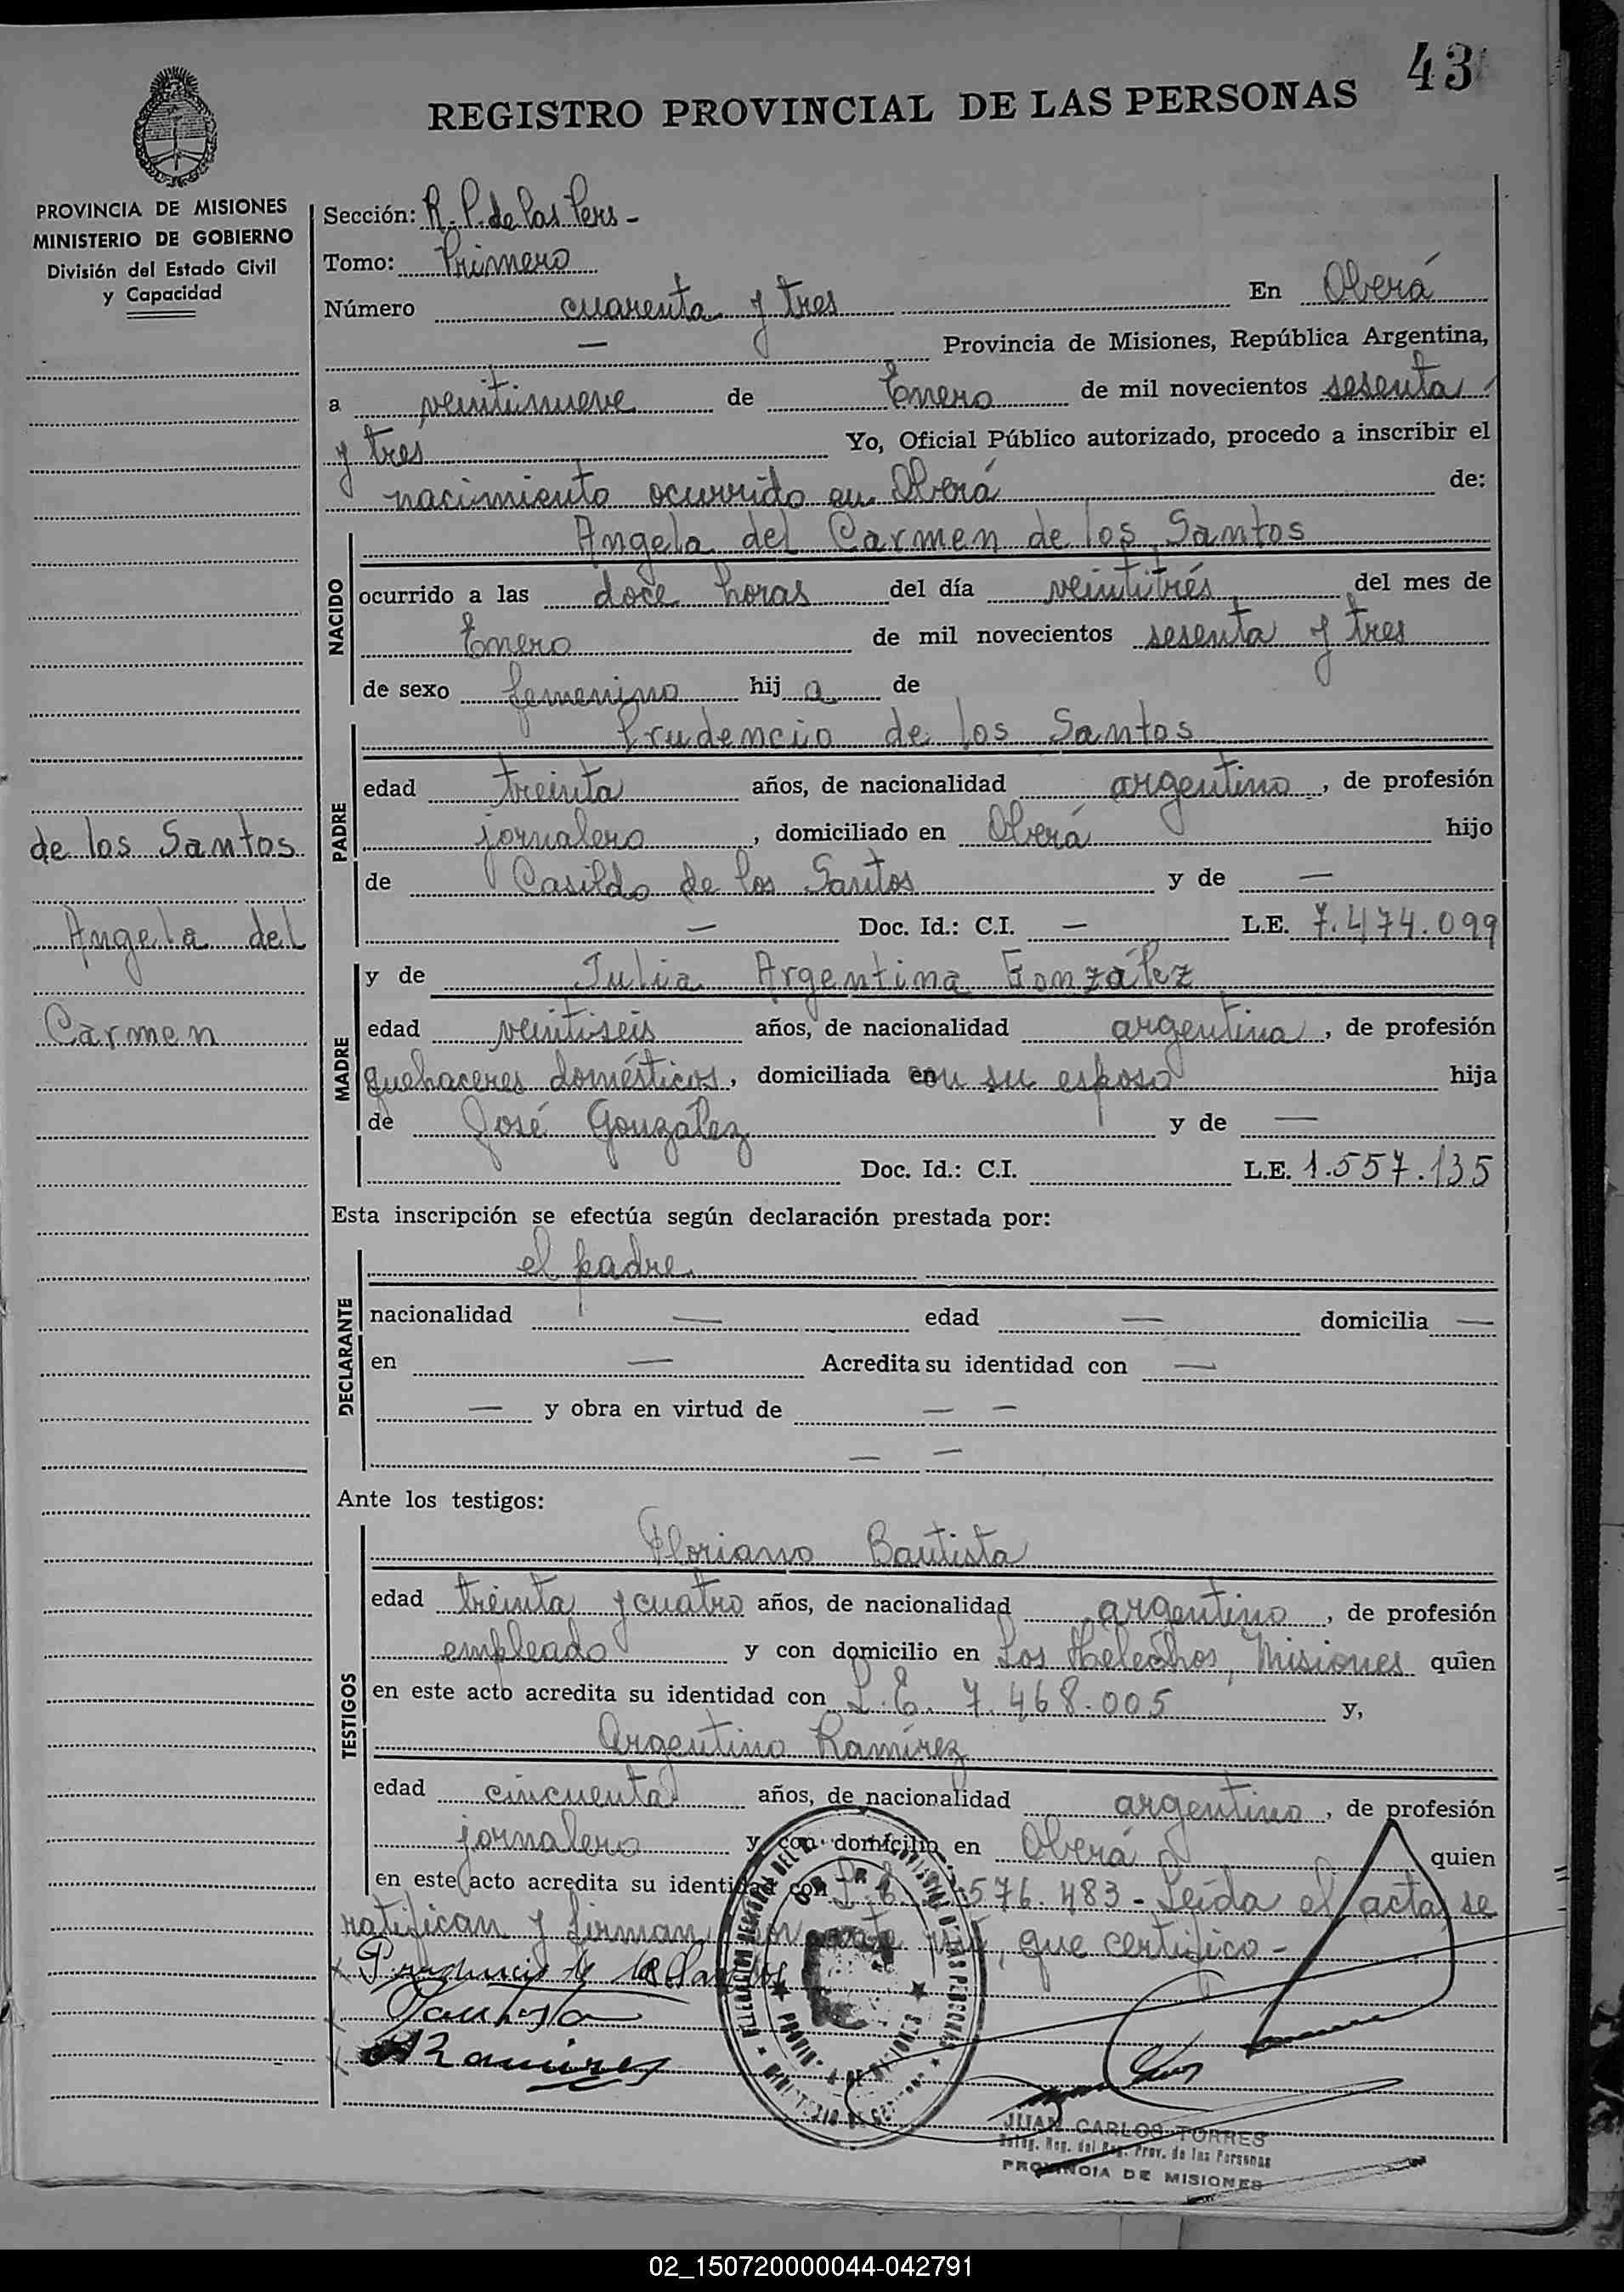 43
REGISTRO PROVINCIAL DE LAS PERSONAS
PROVINCIA DE MISIONES
MINISTERIO DE GOBIERNO
División del Estado Civil
y Capacidad
Sección: R. P. de las Pers -
Tomo: Primero
Número cuarenta y tres En Oberá
— Provincia de Misiones, República Argentina,
a veintinueve de Enero de mil novecientos sesenta
y tres Yo, Oficial Público autorizado, procedo a inscribir el
nacimiento ocurrido en Oberá de:
NACIDO
Angela del Carmen de los Santos
ocurrido a las doce horas del día veintitrés del mes de
Enero de mil novecientos sesenta y tres
de sexo femenino hij a de
PADRE
Prudencio de los Santos
edad treinta años, de nacionalidad argentino, de profesión
jornalero, domiciliado en Oberá hijo
de Casildo de los Santos y de —
— Doc. Id.: C.I. — L.E. 7.474.099
de los Santos
Angela del
Carmen
MADRE
y de Julia Argentina González
edad veintiseis años, de nacionalidad argentina, de profesión
quehaceres domésticos, domiciliada con su esposo hija
de José González y de —
Doc. Id.: C.I. L.E. 1.557.135
Esta inscripción se efectúa según declaración prestada por:
DECLARANTE
el padre
nacionalidad — edad — domicilia —
en — Acredita su identidad con —
— y obra en virtud de — —
— —
Ante los testigos:
TESTIGOS
Floriano Bautista
edad treinta y cuatro años, de nacionalidad argentino, de profesión
empleado y con domicilio en Los Helechos, Misiones quien
en este acto acredita su identidad con L.E. 7.468.005 y,
Argentino Ramírez
edad cincuenta años, de nacionalidad argentino, de profesión
jornalero y con domicilio en Oberá quien
en este acto acredita su identidad con L.E. 576.483 - Leída el acta, se
ratifican y firman por ante mí, que certifico -
Prudencio de los Santos
Bautista
Ramires
JUAN CARLOS TORRES
Deleg. Reg. del Reg. Prov. de las Personas
PROVINCIA DE MISIONES
02_150720000044-042791